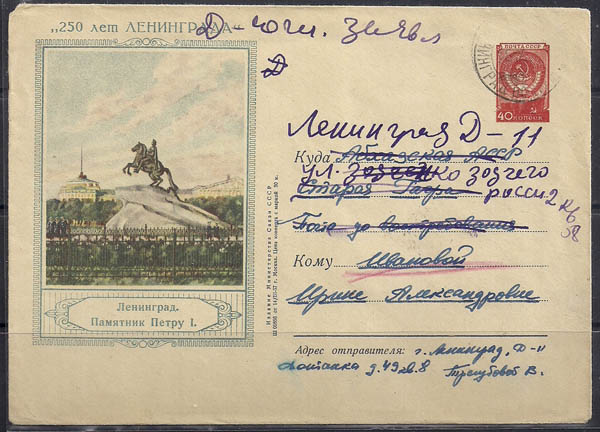 „250 лет ЛЕНИНГРАДА“
Д-
Д
ПОЧТА СССР
40 КОПЕЕК
Ленинград Д-11
Куда Абхазская АССР
ул. зодчего
Старая Гагра
росси-2 кв
До востребования
58
Кому Ивановой
Ирине Александровне
Ленинград.
Памятник Петру I.
Издание Министерства Связи СССР
г. Москва. Цена конверта с маркой
Адрес отправителя: г. Ленинград, Д-11
Фонтанка д. 49 кв. 8 В.